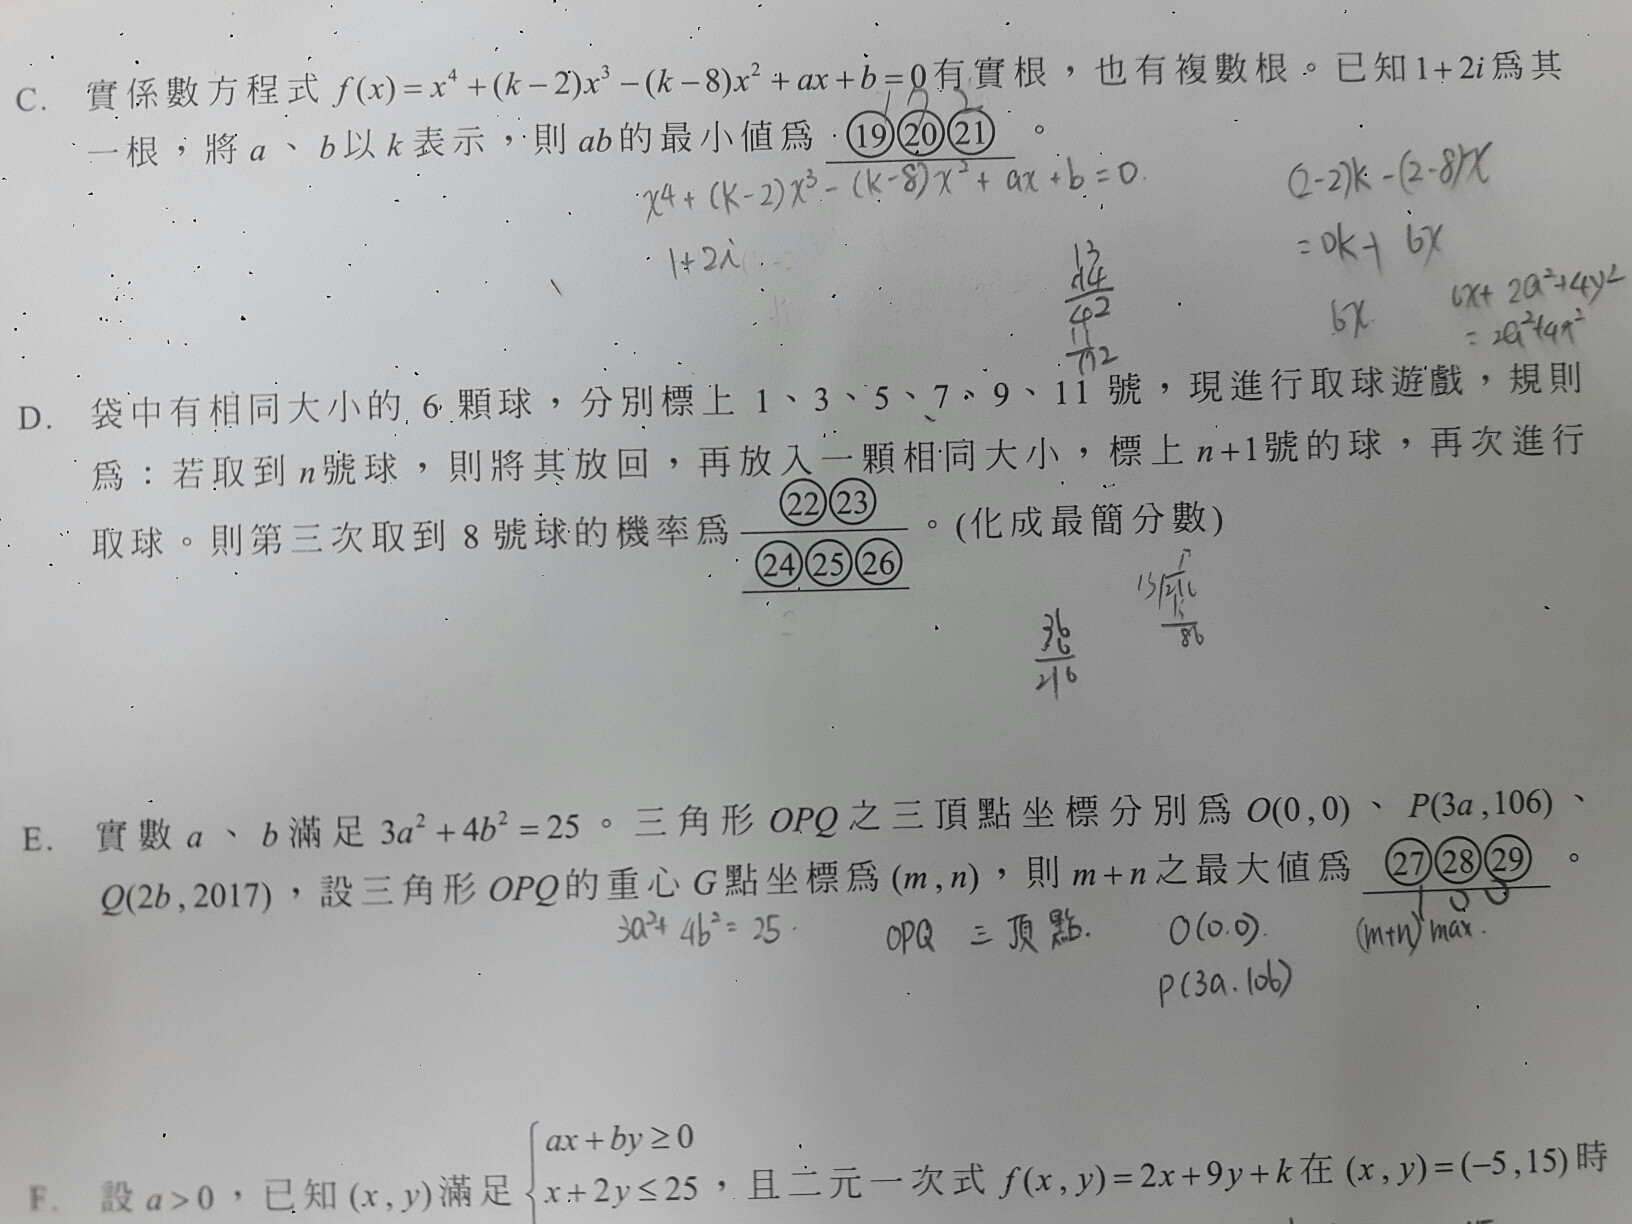 C. 實係數方程式 f(x)=x⁴+(k−2)x³−(k−8)x²+ax+b=0有實根，也有複數根。已知1+2i為其
一根，將 a、b以 k表示，則 ab的最小值為 ⑲⑳㉑。
x⁴+(k-2)x³-(k-8)x²+ax+b=0.
(2-2)k-(2-8)x
1+2i
=0k+6x
13
14
42
11
6x
6x+2a²+4y²
=2a²+4x²
D. 袋中有相同大小的 6 顆球，分別標上 1、3、5、7、9、11 號，現進行取球遊戲，規則
為：若取到 n號球，則將其放回，再放入一顆相同大小，標上 n+1號的球，再次進行
取球。則第三次取到 8 號球的機率為 ㉒㉓ / ㉔㉕㉖。(化成最簡分數)
36
6
216
E. 實數 a、b滿足 3a²+4b²=25。三角形 OPQ之三頂點坐標分別為 O(0,0)、P(3a,106)、
Q(2b,2017)，設三角形 OPQ的重心 G點坐標為(m,n)，則 m+n之最大值為 ㉗㉘㉙。
100
3a²+4b²=25.
OPQ 三頂點.
O(0.0).
(m+n) max.
P(3a.106)
F. 設 a>0，已知(x,y)滿足
ax+by≥0
x+2y≤25，且二元一次式 f(x,y)=2x+9y+k在(x,y)=(−5,15)時